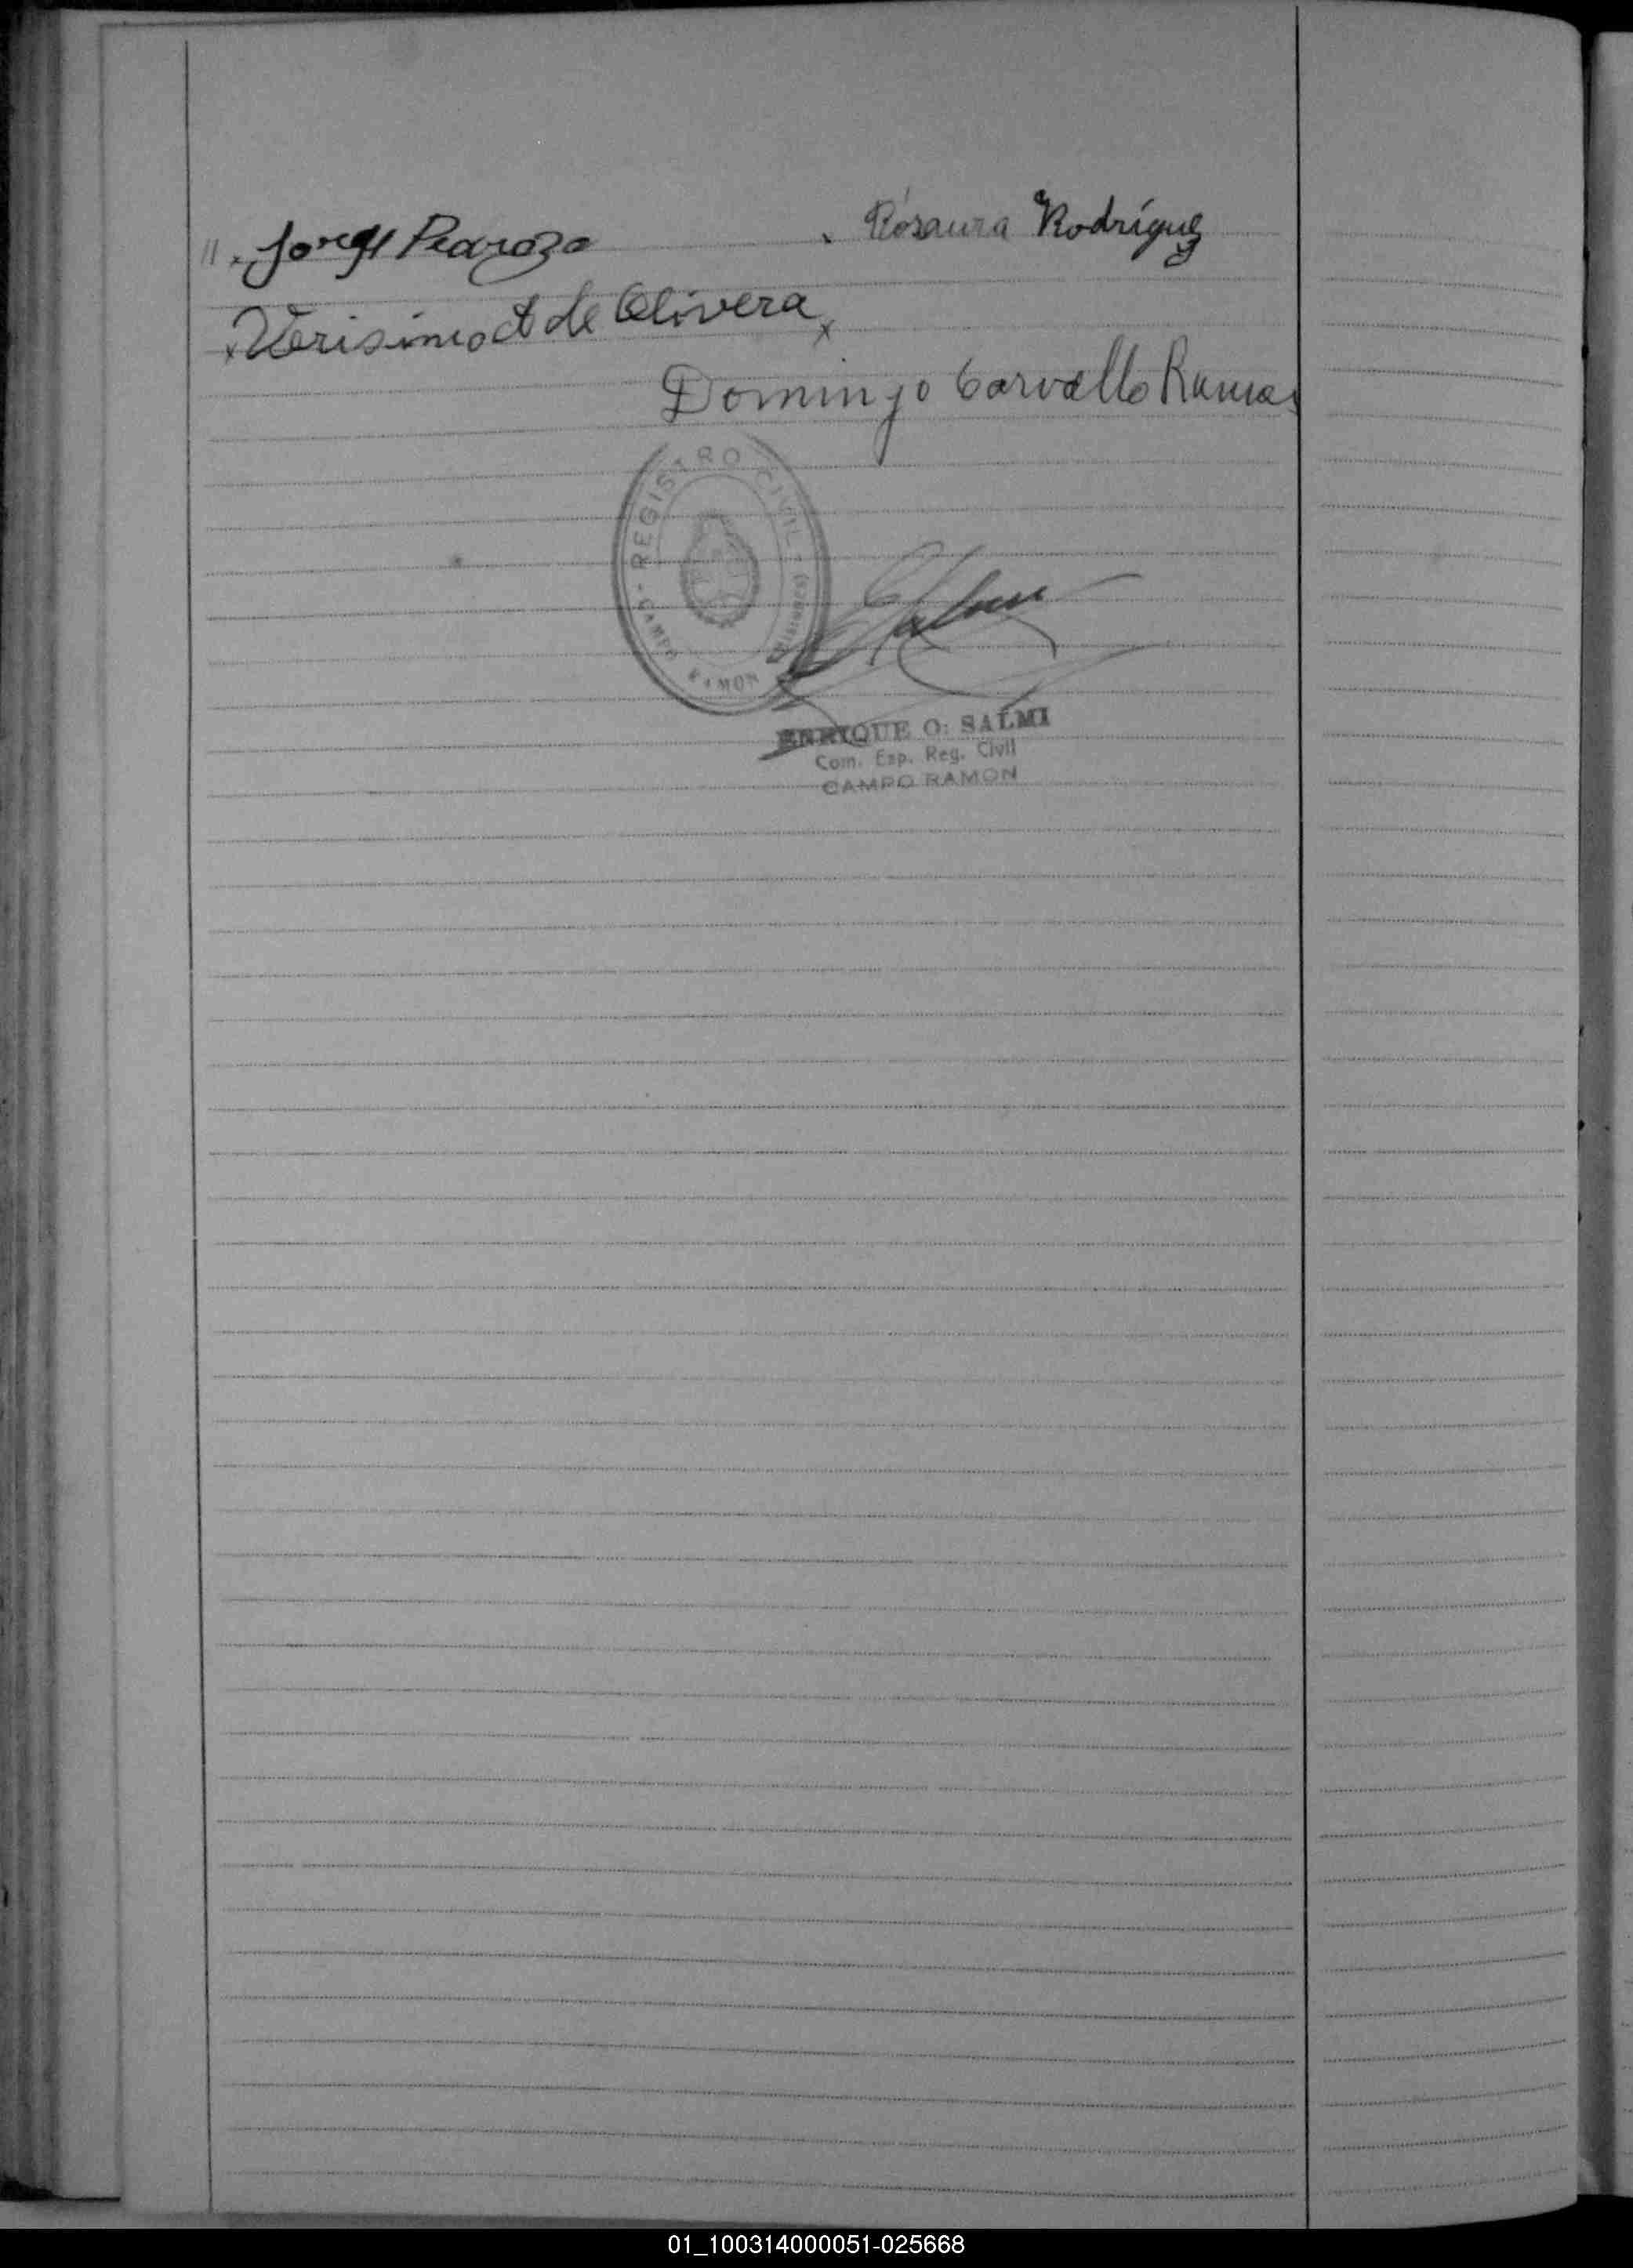 " . Jorge Pedrozo . Rosaura Rodríguez
x Verisimo A de Olivera x
Domingo Carvallo Ramos
REGISTRO CIVIL - (Misiones)
- CAMPO RAMON
ENRIQUE O. SALMI
Com. Esp. Reg. Civil
CAMPO RAMON
01_100314000051-025668